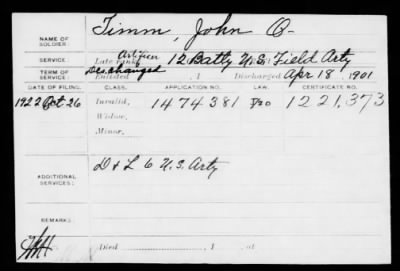 NAME OF SOLDIER: Timm, John O.
SERVICE: Late rank, Artificer 12 Batty U.S. Field Arty
TERM OF SERVICE: Enlisted , 1 Discharged Apr 18, 1901
DATE OF FILING. CLASS. APPLICATION NO. LAW. CERTIFICATE NO.
1922 Oct 26 Invalid, 1474381 1221,373
Widow,
Minor,
ADDITIONAL SERVICES: D & L 6 U.S. Arty
REMARKS:
Died , 1 , at